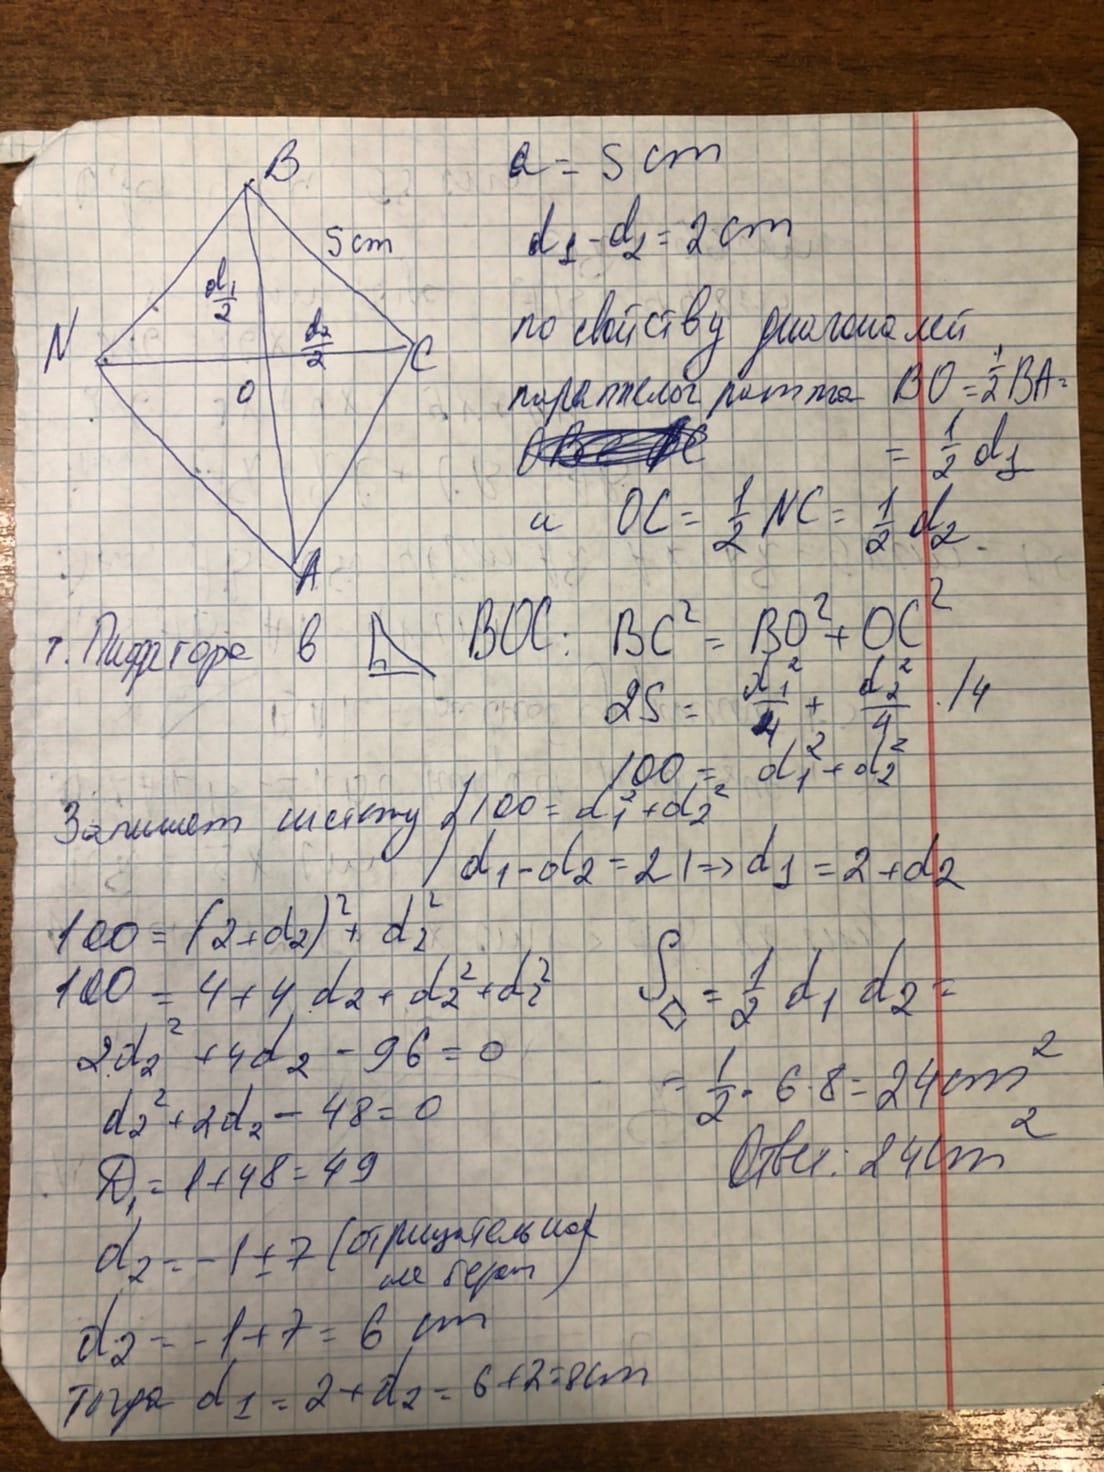 B
a = 5 cm
5 cm
d₁ - d₂ = 2 cm
d₁/2
N
d₂/2
C
O
A
по свойству диагоналей
BO = 1/2 BA =
= 1/2 d₁
и OC = 1/2 NC = 1/2 d₂
т. Пифагора в BOC: BC² = BO² + OC²
25 = d₁²/4 + d₂²/4 ·/4
100 = d₁² + d₂²
Запишем систему { 100 = d₁² + d₂²
d₁ - d₂ = 2 | => d₁ = 2 + d₂
100 = (2 + d₂)² + d₂²
100 = 4 + 4 d₂ + d₂² + d₂²
2d₂² + 4d₂ - 96 = 0
d₂² + 2d₂ - 48 = 0
D₁ = 1 + 48 = 49
d₂ = -1 ± 7 (отрицательное
не берем)
d₂ = -1 + 7 = 6 cm
Тогда d₁ = 2 + d₂ = 6 + 2 = 8 cm
S◇ = 1/2 d₁ d₂ =
= 1/2 · 6 · 8 = 24 cm²
Ответ: 24 cm²